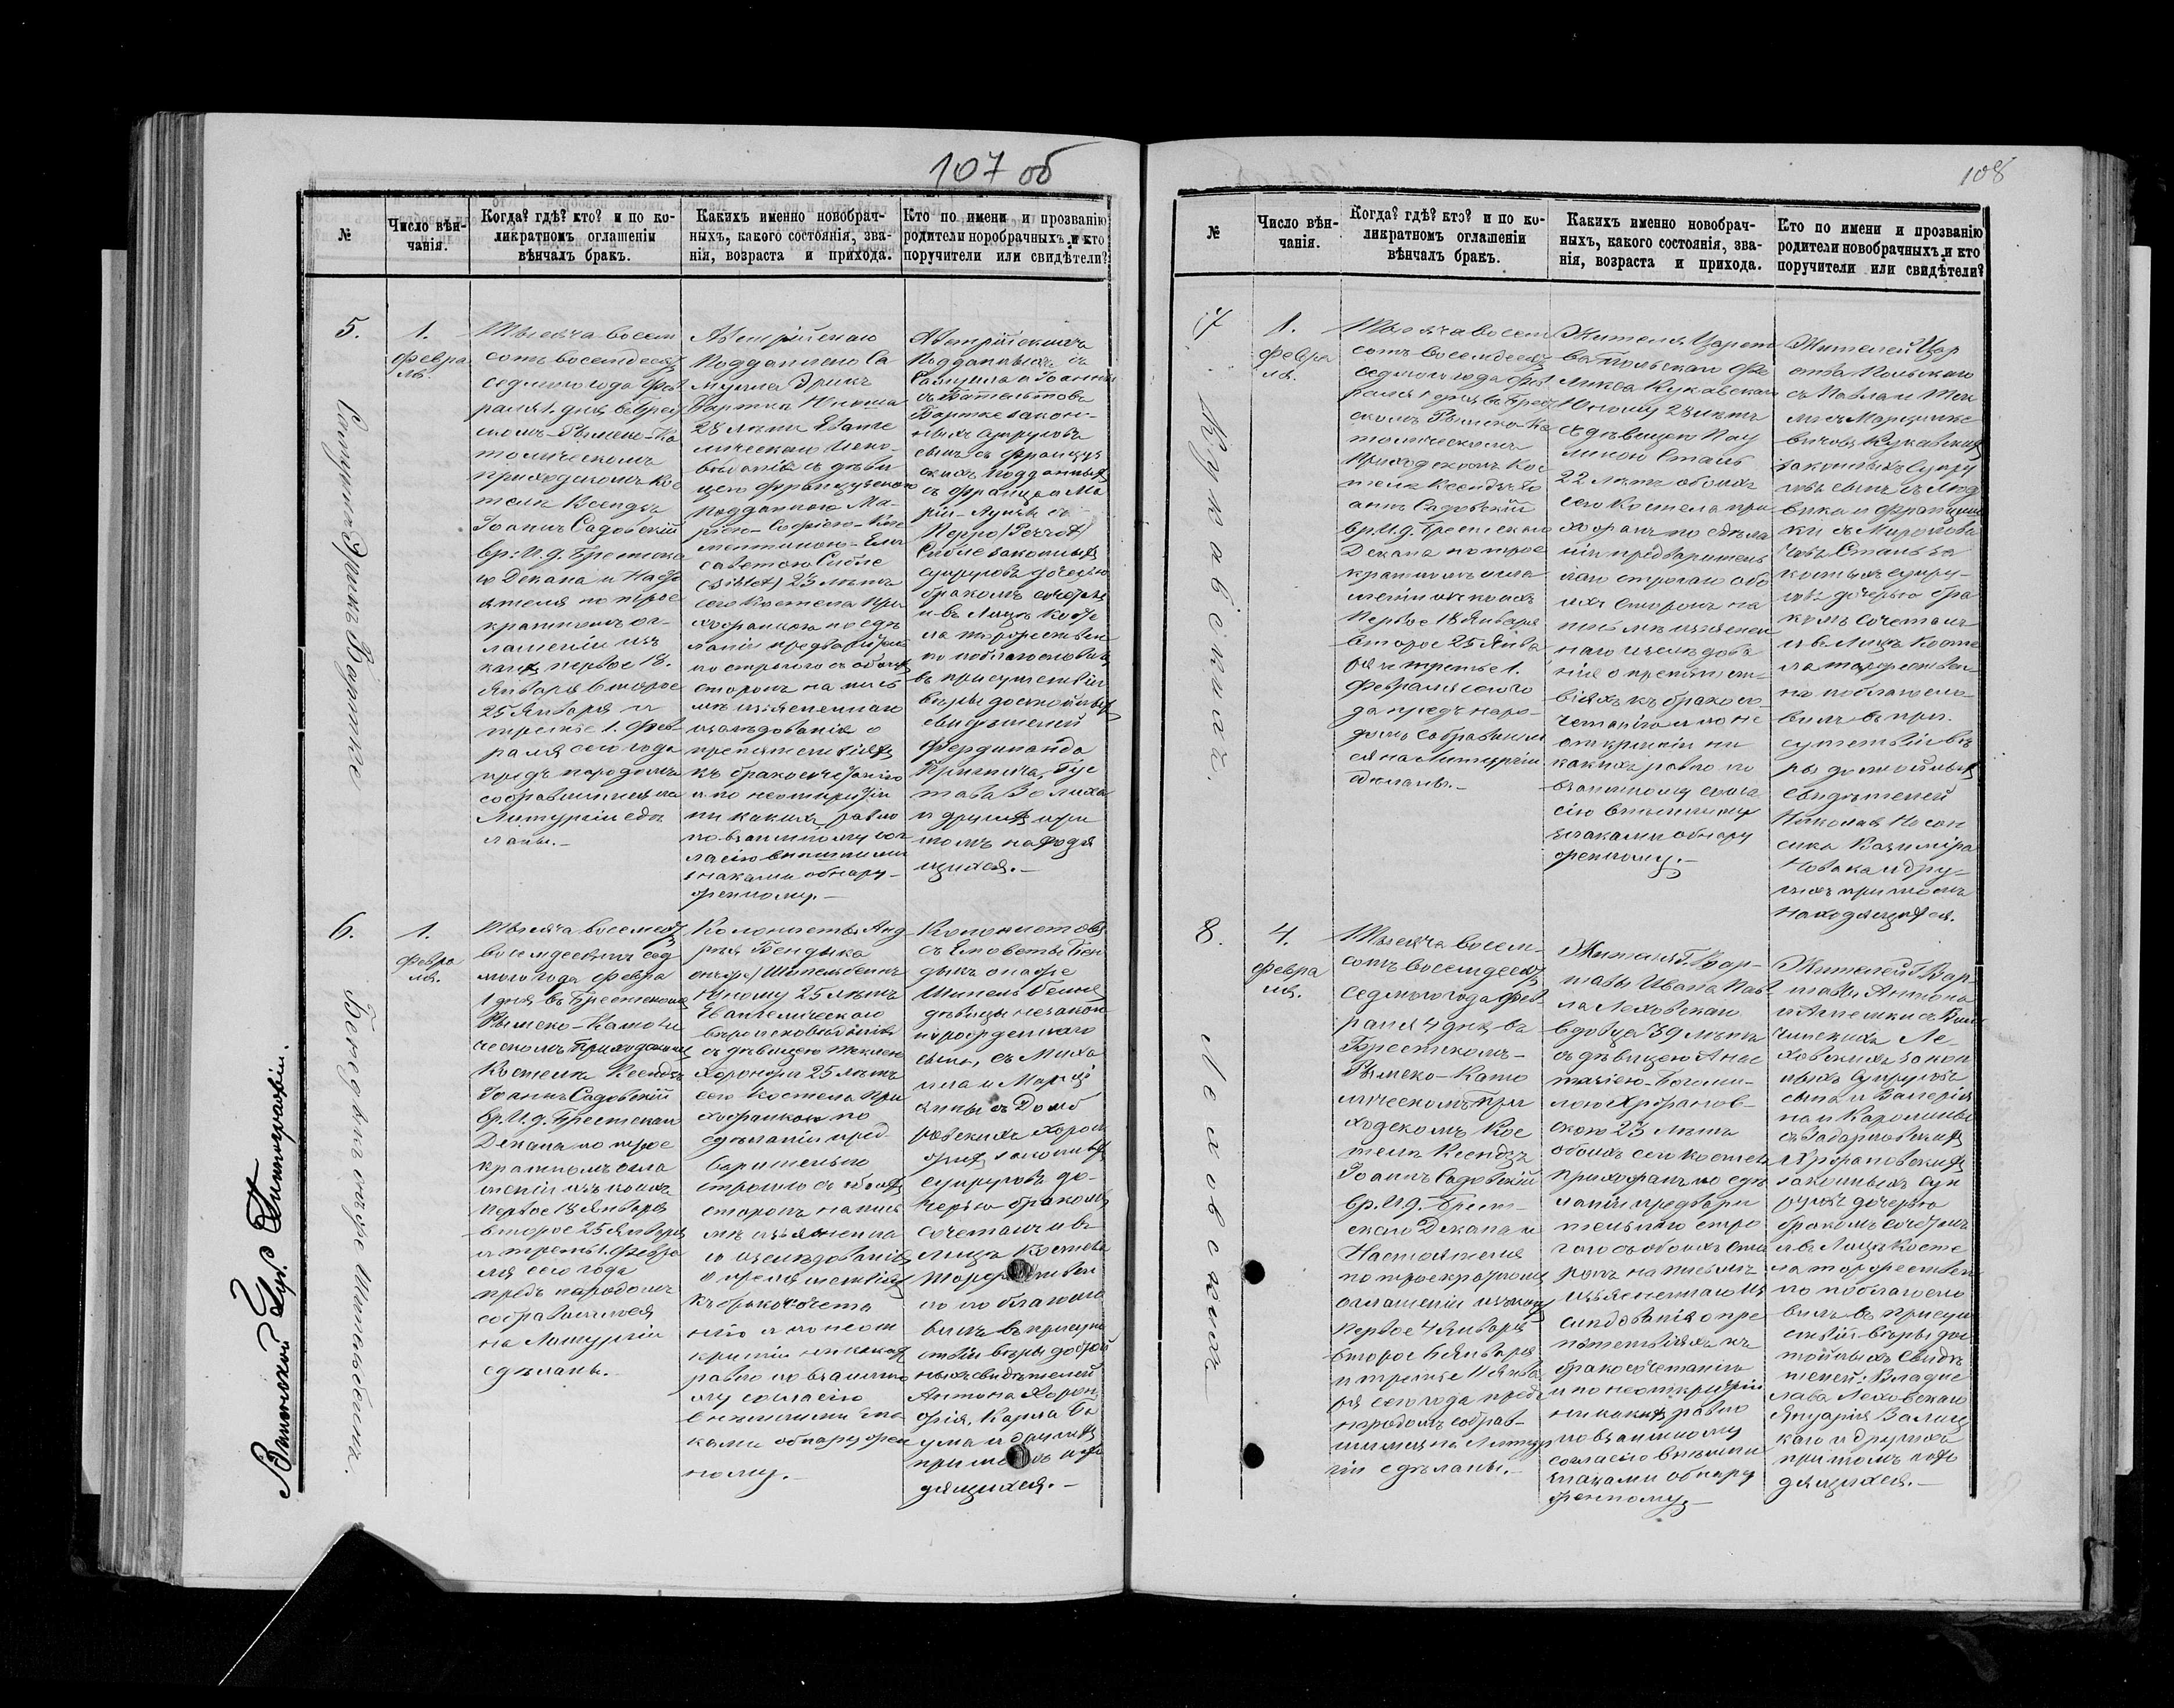 107 об
№
Число вѣн-
чанія.
Когда? гдѣ? кто? и по ко-
ликратномъ оглашеніи
вѣнчалъ бракъ.
Какихъ именно новобрач-
ныхъ, какого состоянія, зва-
нія, возраста и прихода.
Кто по имени и прозванію
родители норобрачныхъ и кто
поручители или свидѣтели?
5.
1.
Февра
ля.
Тысяча восем
сотъ восемдесят
седмого года Фев
раля 1. дня въ Брест
скомъ Римско-Ка
толическомъ
приходскомъ кос
телѣ Ксендзъ
Іоаннъ Садовскій
вр: И. д. Брестска
го Декана и Насто
ятеля по трое
кратномъ ог-
лашеніи изъ
коихъ первое 18.
Января второе
25 Января и
третье 1. Фев-
раля сего года
предъ народомъ
собравшимся на
Литургіи сдѣ
ланы.-
Австрійскаго
Подданнаго Са
муила Эрикъ
Бартке Юноша
28 лѣтъ Еванге
лическаго Испо-
вѣданія съ дѣви
цею Французскою
подданною Ма-
ріею-Софіею-Кле
ментиною-Ели
саветою Сибле
(Siblet) 23 лѣтъ
сего Костела при
хожанкою по сдѣ
ланіи предварительно
строгаго съ обоихъ
сторонъ на пись
мѣ изъясненнаго
изслѣдованія о
препятствіяхъ
къ бракосочетанію
и по неоткрытіи
ни какихъ равно
по взаимному сог
ласію внѣшними
знаками обнару-
женному.-
Австрійскихъ
Подданныхъ
Самуила и Іоанны
Бартке закон-
ныхъ супруговъ
сынъ съ Француз
скихъ подданныхъ
съ Франца и Ма
ріи-Луизы съ
Перро
Сибле законныхъ
супруговъ дочерью
бракомъ сочеталъ
и въ Лицѣ Косте
ла торжествен
но поблагословилъ
въ присутствіи
вѣры достойныхъ
свидѣтелей
Фердинанда
Гус
тава
и другихъ при
томъ находя
щихся.-
Бартке
6.
1.
Февра
ля.
Тысяча восемсотъ
восемдесятъ сед
мого года Февра
1 дня въ Брестскомъ
Римско-Католи
ческомъ Приходскомъ
Костелѣ Ксендзъ
Іоаннъ Садовскій
вр. И. д. Брестскаго
Декана по трое
кратномъ огла
шеніи изъ коихъ
первое 18 Января
второе 25 Января
и третье 1. Февра
ля сего года
предъ народомъ
собравшимся
на Литургіи
сдѣланы.-
Колониста Анд
рея Бендыка
онъ же Шпильбенъ
Юношу 25 лѣтъ
Евангелическаго
вѣроисповѣданія
съ дѣвицею Теклею
Хоронжа 25 лѣтъ
сего Костела при
хожанкою по
сдѣланіи пред
варительно
строгаго съ обоихъ
сторонъ на пись
мѣ изъясненна
го изслѣдованія
о препятствіяхъ
къ бракосочета
нію и по неот
крытіи никакихъ
равно по взаимно
му согласію
внѣшними зна
ками обнаружен
ному.-
Колонистовъ
дѣвицы незакон
норожденнаго
сынъ, съ Миха
ила и Марці
анны съ Домб
ровскихъ Хорон
жихъ законныхъ
супруговъ до-
черью бракомъ
сочеталъ и въ
лицѣ Костела
торжествен
но поблагосло
вилъ въ присут
ствіи вѣры достой
ныхъ свидѣтелей
Антона Хорон
жія, Карла Ба
ума и другихъ
при томъ нахо
дящихся.-
Виленской Губ. Типографіи.
108
№
Число вѣн-
чанія.
Когда? гдѣ? кто? и по ко-
ликратномъ оглашеніи
вѣнчалъ бракъ.
Какихъ именно новобрач-
ныхъ, какого состоянія, зва-
нія, возраста и прихода.
Кто по имени и прозванію
родители новобрачныхъ и кто
поручители или свидѣтели?
7
1.
Февра
ля.
Тысяча восем
сотъ восемдесятъ
седмого года Фев
раля 1 дня въ Брест
скомъ Римско-Ка
толическомъ
Приходскомъ Кос
телѣ Ксендзъ Іо
аннъ Садовскій
вр. И. д. Брестскаго
Декана по трое
кратномъ огла
шеніи изъ коихъ
Первое 18 Января
второе 25 Янва
ря и третье 1.
Февраля сего го
да предъ наро-
домъ собравшим
ся на Литургіи
сдѣланы.-
Жителя Царст
ва Польскаго Фе
ликса Кукавскаго
Юношу 28 лѣтъ
съ дѣвицею Пау
линою Сталь
22 лѣтъ обоихъ
сего Костела при
хожанъ по сдѣла
ніи предваритель
наго строгаго съ обо
ихъ сторонъ на
письмѣ изъяснен
наго изслѣдова
нія о препятст-
віяхъ къ бракосо
четанію и по не
открытіи ни
какихъ равно по
взаимному согла
сію внѣшними
знаками обнару
женному.-
Жителей Цар
ства Польскаго
съ Павла и Тек
ли съ Марцинке
вичовъ Кукавскихъ
законныхъ супру
говъ сынъ съ Люд
вика и Францишки
съ
Сталь за
конныхъ супру-
говъ дочерью бра
комъ сочеталъ
и въ Лицѣ Косте
ла торжествен-
но поблагосло
вилъ въ при-
сутствіи вѣ
ры достойныхъ
свидѣтелей
Николая
Казиміра
Новака и дру-
гихъ при томъ
находящихся.
Кукавскихъ.
8.
4.
Февра
ля.
Тысяча восем-
сотъ восемдесятъ
седмого года Фев
раля 4 дня въ
Брестскомъ-
Римско-Като
лическомъ при
ходскомъ Кос
телѣ Ксендзъ
Іоаннъ Садовскій
вр. И. д. Брест-
скаго Декана и
Настоятеля
по троекратномъ
оглашеніи изъ коихъ
первое 4 Января
второе 6 Января
и третье 11 Янва
ря сего года предъ
народомъ собрав-
шимся на Литур
гіи сдѣланы.-
Жителя г. Вар-
шавы Ивана Пав
ла Леховскаго
вдовца 39 лѣтъ
съ дѣвицею Анас
тазіею-Богоми-
лою Хржанов-
скою 23 лѣтъ
обоихъ сего костела
прихожанъ по сдѣ
ланіи предвари
тельнаго стро
гаго съ обоихъ сто
ронъ на письмѣ
изъясненнаго из
слѣдованія о пре
пятствіяхъ къ
бракосочетанію
и по неоткрытіи
никакихъ равно
по взаимному
согласію внѣшними
знаками обнару
женному.-
Жителей г. Вар
шавы Антона
Ле-
ховскихъ закон
ныхъ супруговъ
сына и Валерія
на и Каролины
Хржановскихъ
законныхъ суп
руговъ дочерью
бракомъ сочеталъ
и въ Лицѣ Косте
ла торжествен
но поблагосло
вилъ въ присут
ствіи вѣры дос
тойныхъ свидѣ
телей: Владис
лава Леховскаго
Януарія
и другихъ
при томъ нахо
дящихся.-
Леховскихъ